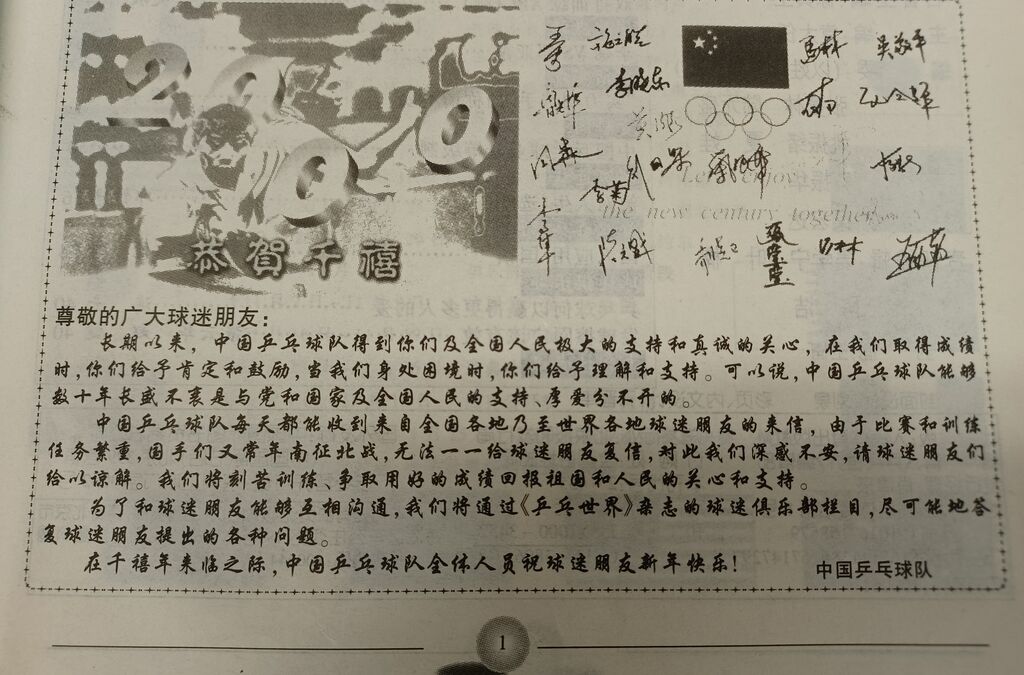 2000
恭贺千禧
施之皓
马林
李晓东
李菊
Let's enjoy
the new century together
尊敬的广大球迷朋友:
长期以来,中国乒乓球队得到你们及全国人民极大的支持和真诚的关心,在我们取得成绩
时,你们给予肯定和鼓励,当我们身处困境时,你们给予理解和支持。可以说,中国乒乓球队能够
数十年长盛不衰是与党和国家及全国人民的支持、厚爱分不开的。
中国乒乓球队每天都能收到来自全国各地乃至世界各地球迷朋友的来信,由于比赛和训练
任务繁重,国手们又常年南征北战,无法一一给球迷朋友复信,对此我们深感不安,请球迷朋友们
给以谅解。我们将刻苦训练、争取用好的成绩回报祖国和人民的关心和支持。
为了和球迷朋友能够互相沟通,我们将通过《乒乓世界》杂志的球迷俱乐部栏目,尽可能地答
复球迷朋友提出的各种问题。
在千禧年来临之际,中国乒乓球队全体人员祝球迷朋友新年快乐!
中国乒乓球队
1